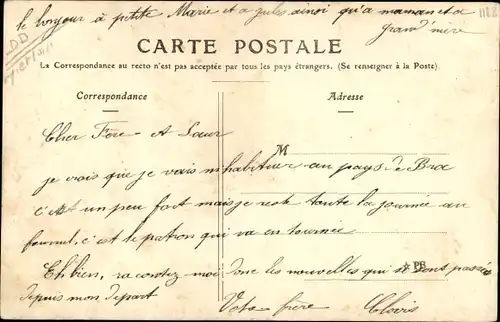 le bonjour à petite Marie et a jules ainsi qu'a maman et a
grand'mère
CARTE POSTALE
La Correspondance au recto n'est pas acceptée par tous les pays étrangers. (Se renseigner à la Poste).
Correspondance
Adresse
Cher Frère et Sœur
M
je crois que je vais m'habituer au pays de Broc
c'est un peu fort mais je reste toute la journée au
fournil, c'est le patron qui va en tournée
Eh bien, racontez moi donc les nouvelles qui se sont passées
PB
depuis mon départ
Votre frère Clovis